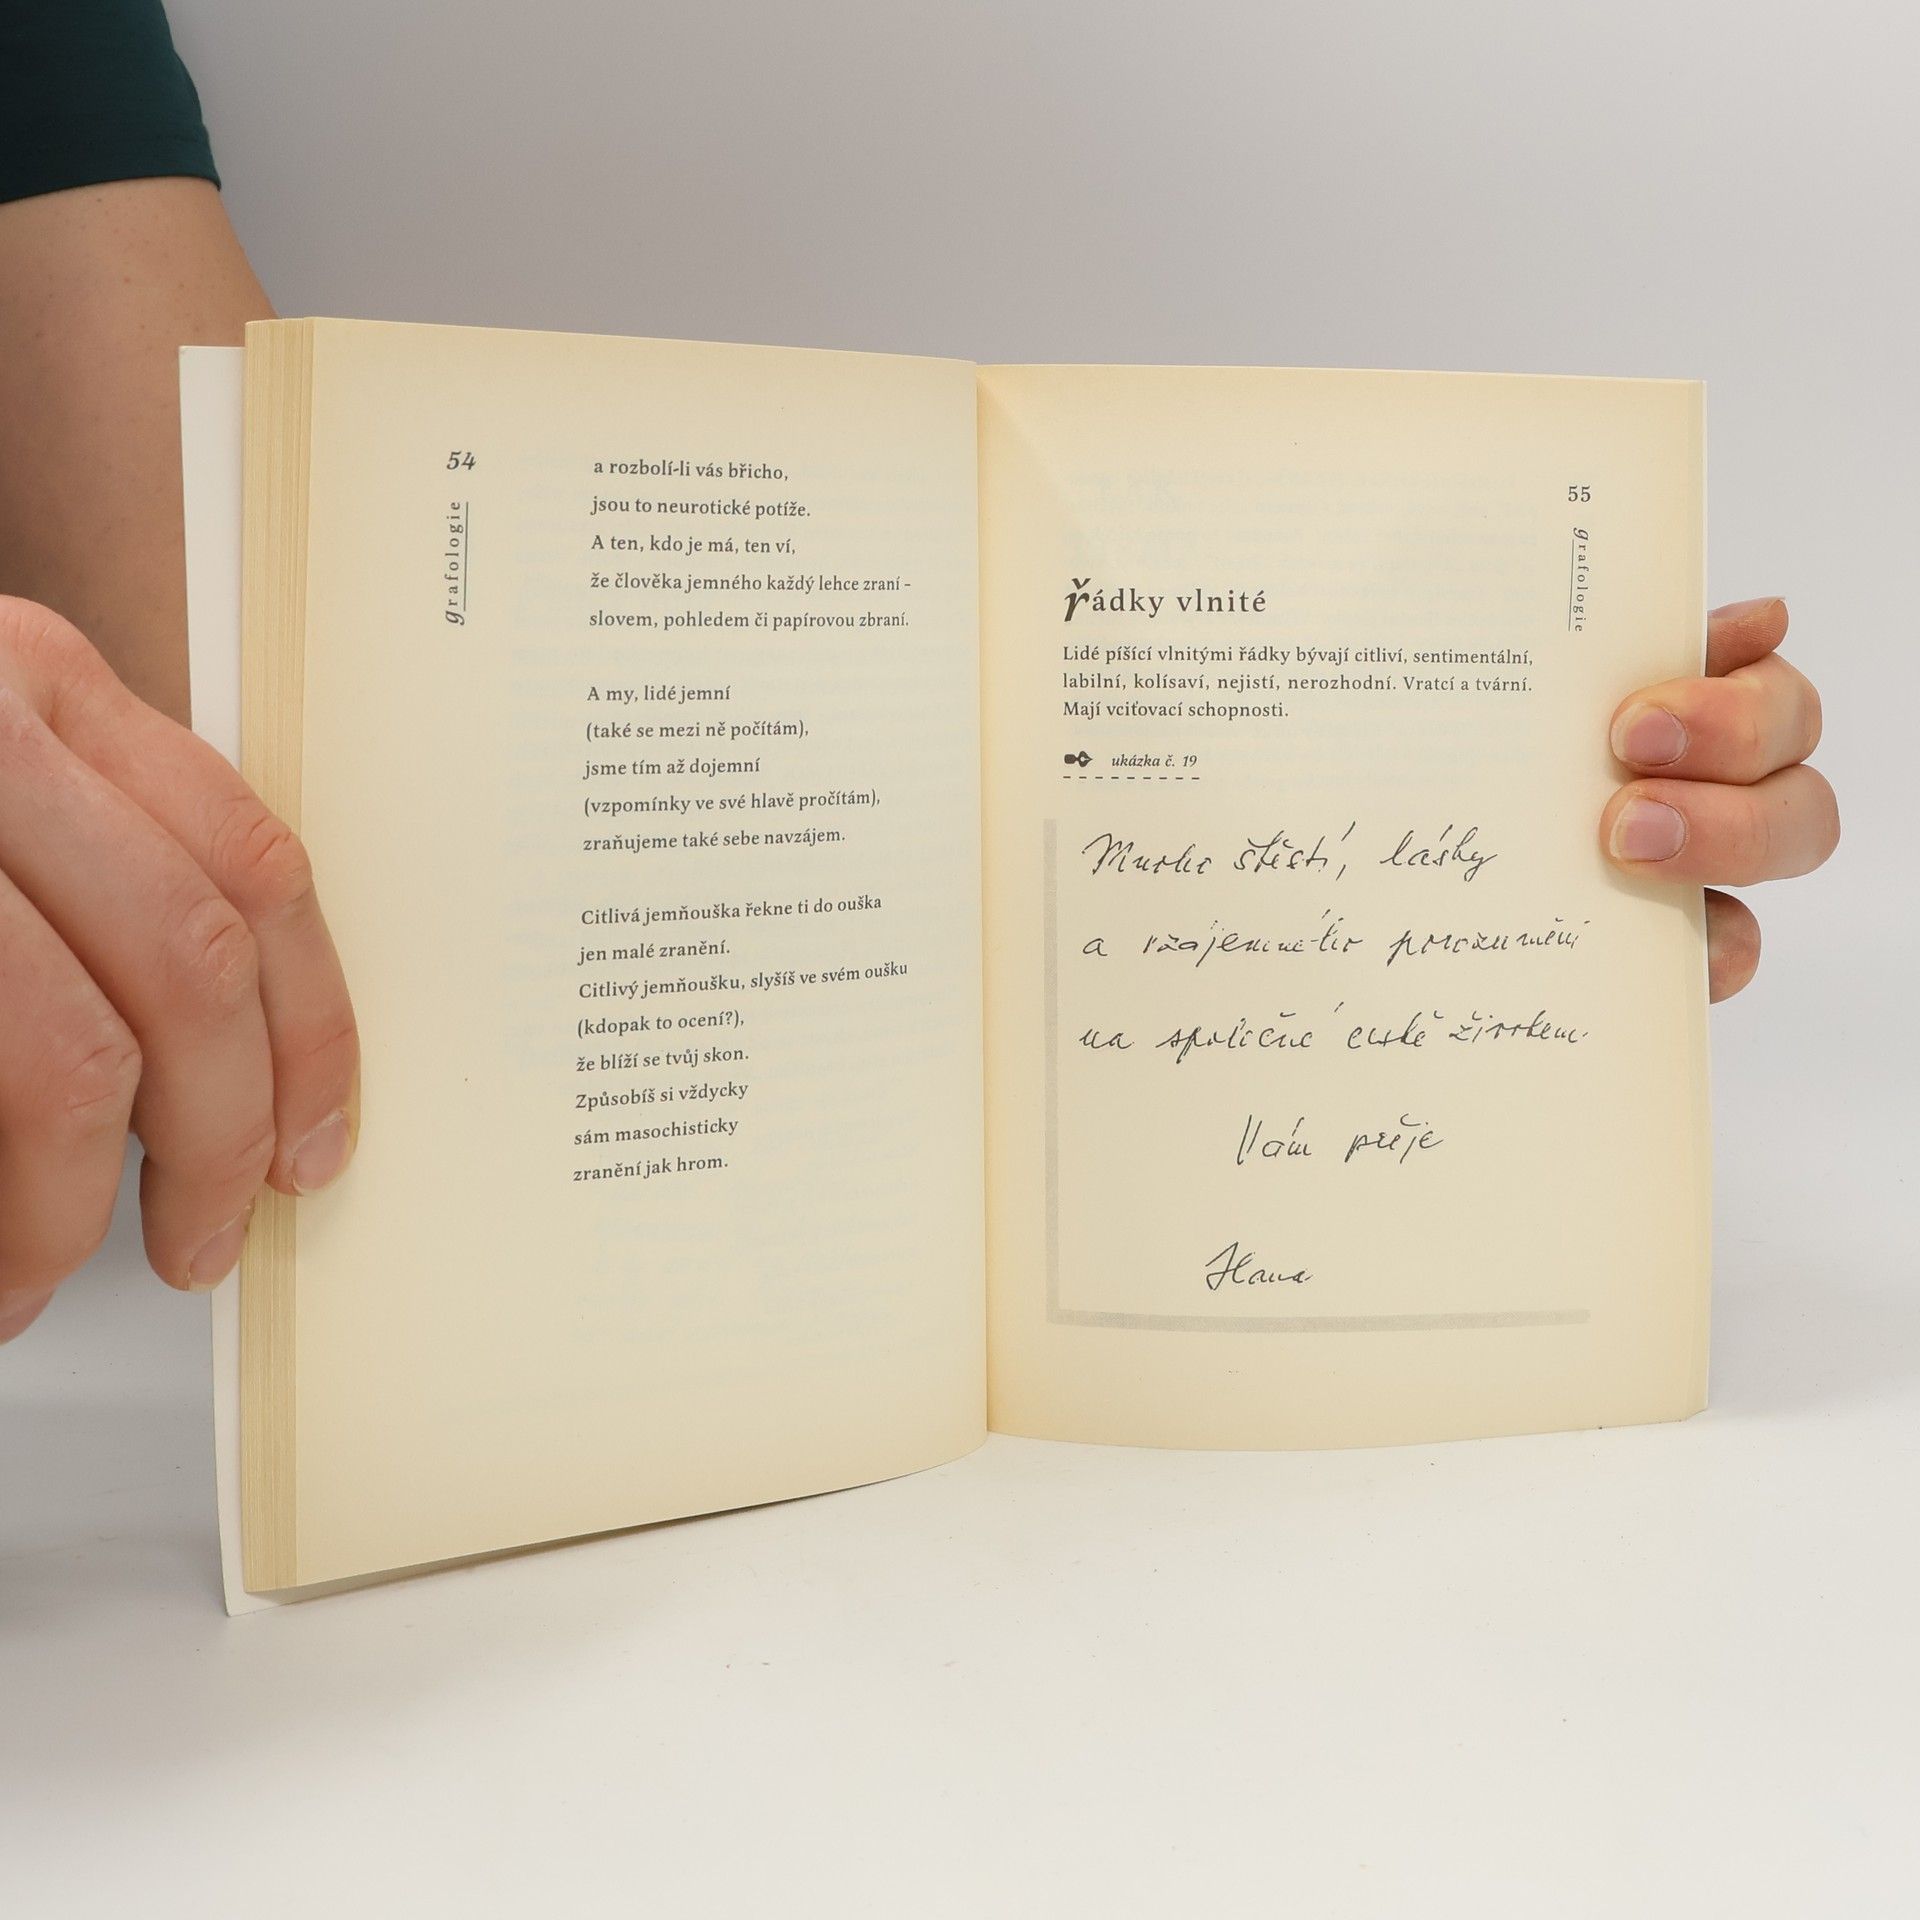 54
grafologie
a rozbolí-li vás břicho,
jsou to neurotické potíže.
A ten, kdo je má, ten ví,
že člověka jemného každý lehce zraní –
slovem, pohledem či papírovou zbraní.
A my, lidé jemní
(také se mezi ně počítám),
jsme tím až dojemní
(vzpomínky ve své hlavě pročítám),
zraňujeme také sebe navzájem.
Citlivá jemňouška řekne ti do ouška
jen malé zranění.
Citlivý jemňoušku, slyšíš ve svém oušku
(kdopak to ocení?),
že blíží se tvůj skon.
Způsobíš si vždycky
sám masochisticky
zranění jak hrom.
55
grafologie
řádky vlnité
Lidé píšící vlnitými řádky bývají citliví, sentimentální,
labilní, kolísaví, nejistí, nerozhodní. Vratcí a tvární.
Mají vciťovací schopnosti.
ukázka č. 19
Mnoho štěstí, lásky
a vzájemného porozumění
na společné cestě životem
Vám přeje
Hana